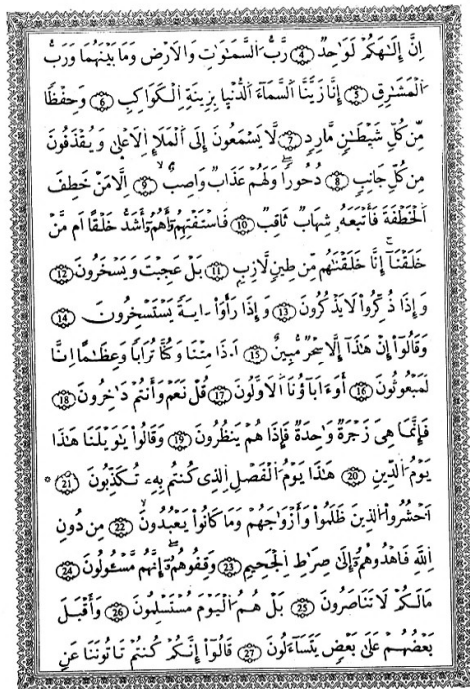 اِنَّ إِلَٰهَكُمْ لَوَٰحِدٌ (4) رَّبُّ اُ۬لسَّمَٰوَٰتِ وَالَارْضِ وَمَا بَيْنَهُمَا وَرَبُّ
اُ۬لْمَشَٰرِقِ (5) إِنَّا زَيَّنَّا اَ۬لسَّمَآءَ اَ۬لدُّنْيَا بِزِينَةِ اِ۬لْكَوَاكِبِ (6) وَحِفْظًا
مِّن كُلِّ شَيْطَٰنٍ مَّارِدٍ (7) لَّا يَسْمَعُونَ إِلَى اَ۬لْمَلَإِ اِ۬لَاعْلَىٰ وَيُقْذَفُونَ
مِن كُلِّ جَانِبٍ (8) دُحُورًا وَلَهُمْ عَذَابٌ وَاصِبٌ (9) اِلَّا مَنْ خَطِفَ
اَ۬لْخَطْفَةَ فَأَتْبَعَهُۥ شِهَابٌ ثَاقِبٌ (10) فَاسْتَفْتِهِمُۥٓ أَهُمُۥٓ أَشَدُّ خَلْقًا اَم مَّنْ
خَلَقْنَآ إِنَّا خَلَقْنَٰهُم مِّن طِينٍ لَّازِبٍ (11) بَلْ عَجِبْتَ وَيَسْخَرُونَ (12)
وَإِذَا ذُكِّرُوا لَا يَذْكُرُونَ (13) وَإِذَا رَأَوَا ـايَةً يَسْتَسْخِرُونَ (14)
وَقَالُوٓا إِنْ هَٰذَآ إِلَّا سِحْرٌ مُّبِينٌ (15) اَ.ذَا مِتْنَا وَكُنَّا تُرَابًا وَعِظَٰمًا اِنَّا
لَمَبْعُوثُونَ (16) أَوَءَابَآؤُنَا اَ۬لَاوَّلُونَ (17) قُلْ نَعَمْ وَأَنتُمْ دَٰخِرُونَ (18)
فَإِنَّمَا هِىَ زَجْرَةٌ وَٰحِدَةٌ فَإِذَا هُمْ يَنظُرُونَ (19) وَقَالُوا يَٰوَيْلَنَا هَٰذَا
يَوْمُ اُ۬لدِّينِ (20) هَٰذَا يَوْمُ اُ۬لْفَصْلِ اِ۬لذِى كُنتُم بِهِۦ تُكَذِّبُونَ (21) *
اَ۟حْشُرُوا اُ۬لذِينَ ظَلَمُوا وَأَزْوَٰجَهُمْ وَمَا كَانُوا يَعْبُدُونَ (22) مِن دُونِ
اِ۬للَّهِ فَاهْدُوهُمُۥٓ إِلَىٰ صِرَٰطِ اِ۬لْجَحِيمِ (23) وَقِفُوهُمُۥٓ إِنَّهُم مَّسْـُٔولُونَ (24)
مَا لَكُمْ لَا تَنَاصَرُونَ (25) بَلْ هُمُ اُ۬لْيَوْمَ مُسْتَسْلِمُونَ (26) وَأَقْبَلَ
بَعْضُهُمْ عَلَىٰ بَعْضٍ يَتَسَآءَلُونَ (27) قَالُوٓا إِنَّكُمْ كُنتُمْ تَاتُونَنَا عَنِ